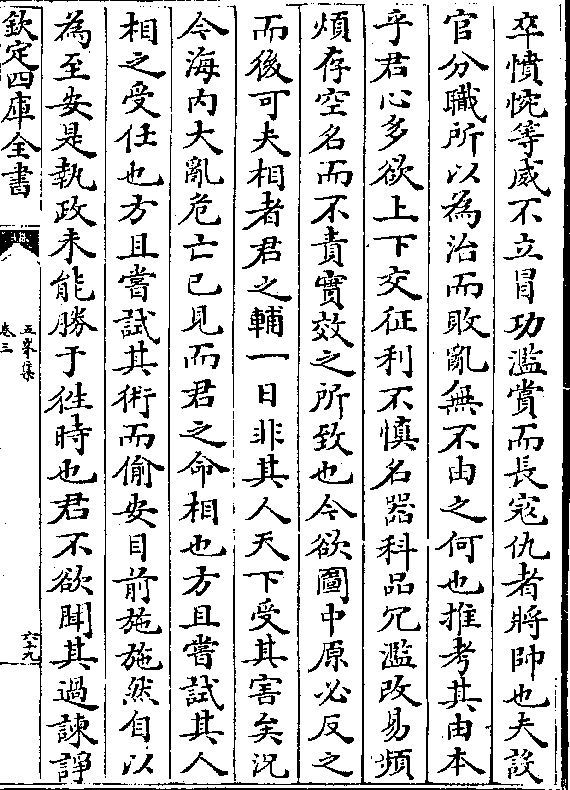 卒憤惋等威不立冒功濫賞而長寇仇者將帥也夫設
官分職所以為治而敗亂無不由之何也推考其由本
乎君心多欲上下交征利不慎名器科品冗濫改易頻
煩存空名而不責實效之所致也今欲圖中原必反之
而後可夫相者君之輔一日非其人天下受其害矣況
今海內大亂危亡已見而君之命相也方且嘗試其人
相之受任也方且嘗試其術而偷安目前施施然自以
為至安是執政未能勝于徃時也君不欲聞其過諫諍
欽定四庫全書
五峯集
卷三
六十九